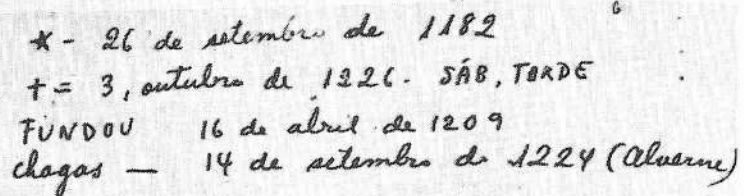 * - 26 de setembro de 1182
+ = 3, outubro de 1226. SÁB, TARDE
FUNDOU 16 de abril de 1209
chagas — 14 de setembro de 1224 (Alverne)